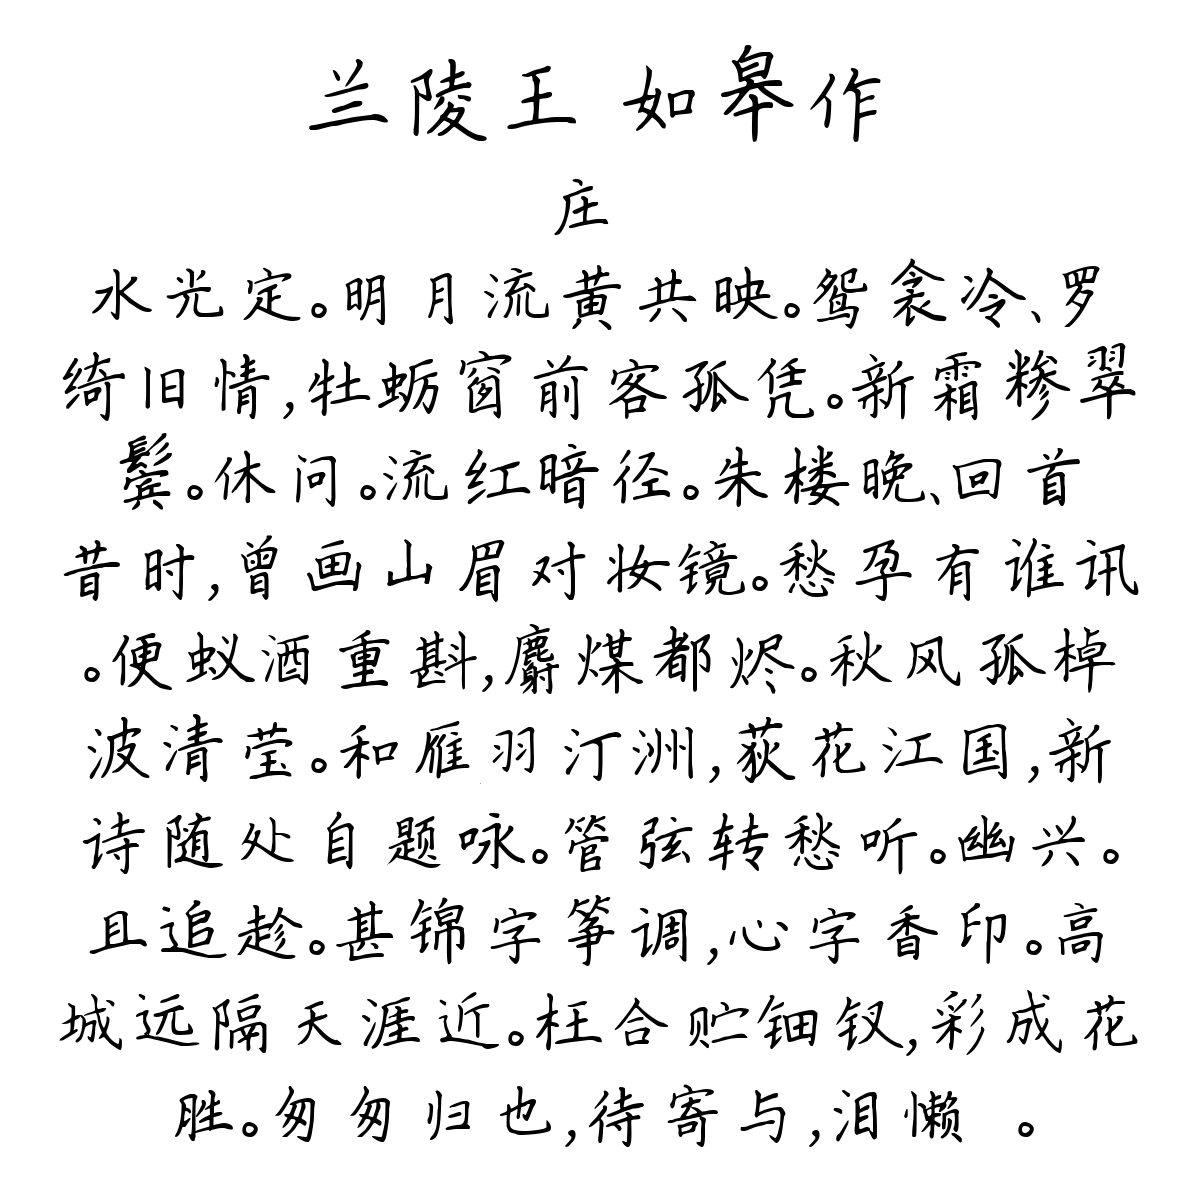 兰陵王 如皋作
庄
水光定。明月流黄共映。鸳衾冷、罗
绮旧情,牡蛎窗前客孤凭。新霜糁翠
鬓。休问。流红暗径。朱楼晚、回首
昔时,曾画山眉对妆镜。愁孕有谁讯
。便蚁酒重斟,麝煤都烬。秋风孤棹
波清莹。和雁羽汀洲,荻花江国,新
诗随处自题咏。管弦转愁听。幽兴。
且追趁。甚锦字筝调,心字香印。高
城远隔天涯近。枉合贮钿钗,彩成花
胜。匆匆归也,待寄与,泪懒 。